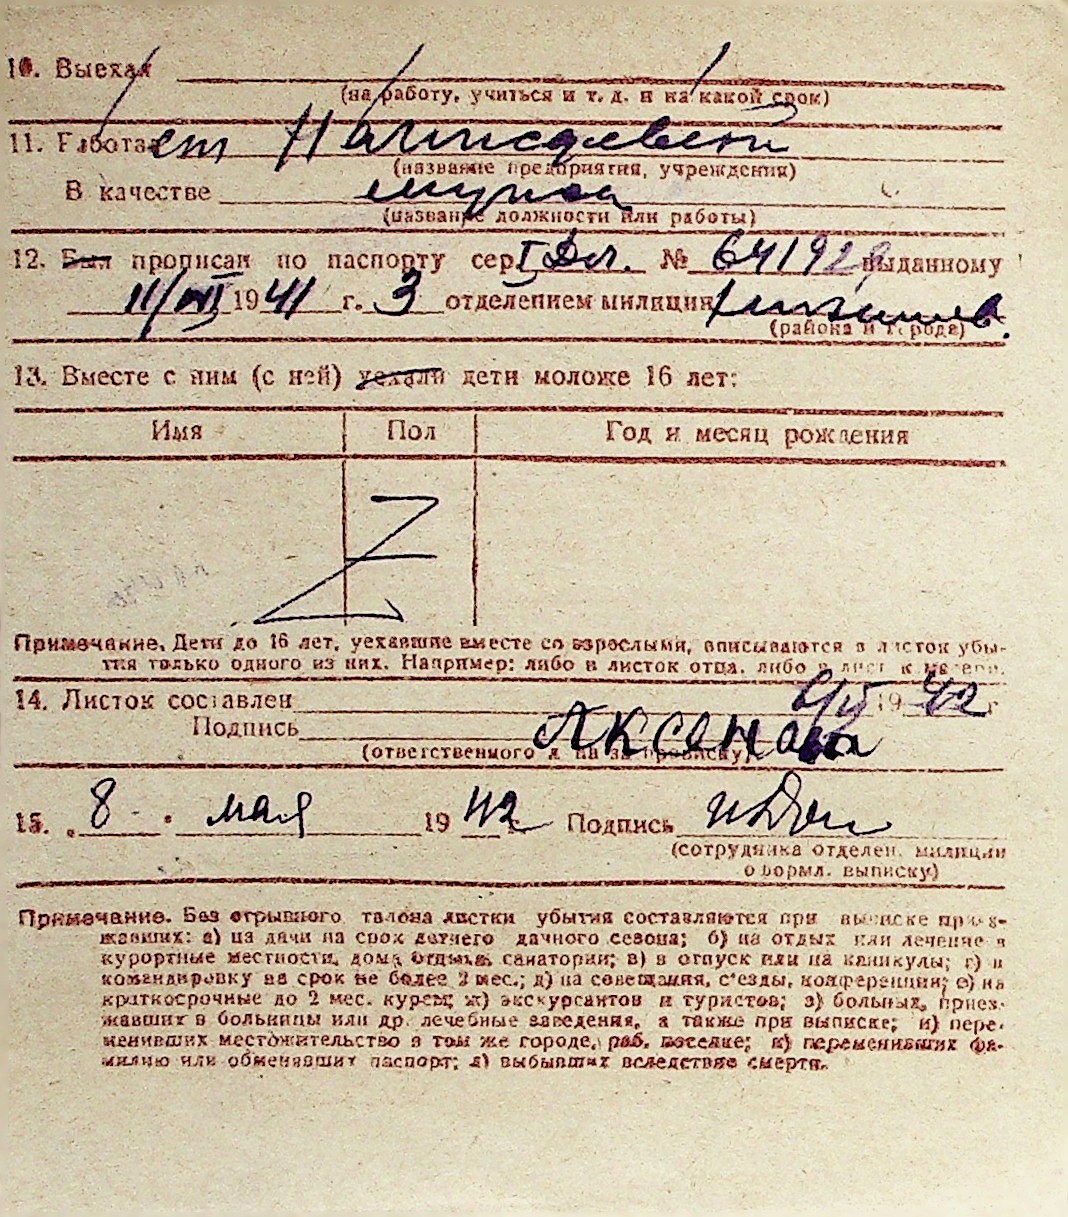 10. Выехал
(на работу, учиться и т. д. и на какой срок)
11. Работает
(название предприятия, учреждения)
В качестве
(название должности или работы)
12. Был прописан по паспорту сер. № 641929 выданному
11/VII 1941 г. 3 отделением милиции
(района и города)
13. Вместе с ним (с ней) уехали дети моложе 16 лет:
Имя Пол Год и месяц рождения
Z
Примечание. Дети до 16 лет, уехавшие вместе со взрослыми, вписываются в листок убы-
тия только одного из них. Например: либо в листок отца, либо в листок матери.
14. Листок составлен 6/V 1942 г
Подпись Аксенова
(ответственного л на за прописку)
15. „ 8 " мая 1942 г. Подпись
(сотрудника отделен. милиции
оформл. выписку)
Примечание. Без отрывного талона листки убытия составляются при выписке приез-
жавших: а) на дачи на срок летнего дачного сезона; б) на отдых или лечение в
курортные местности, дома отдыха, санатории; в) в отпуск или на каникулы; г) в
командировку на срок не более 2 мес.; д) на совещания, с'езды, конференции; е) на
краткосрочные до 2 мес. курсы; ж) экскурсантов и туристов; з) больных, приез-
жавших в больницы или др. лечебные заведения, а также при выписке; и) пере-
менивших местожительство в том же городе, раб. поселке; к) переменивших фа-
милию или обменявших паспорт; л) выбывших вследствие смерти.